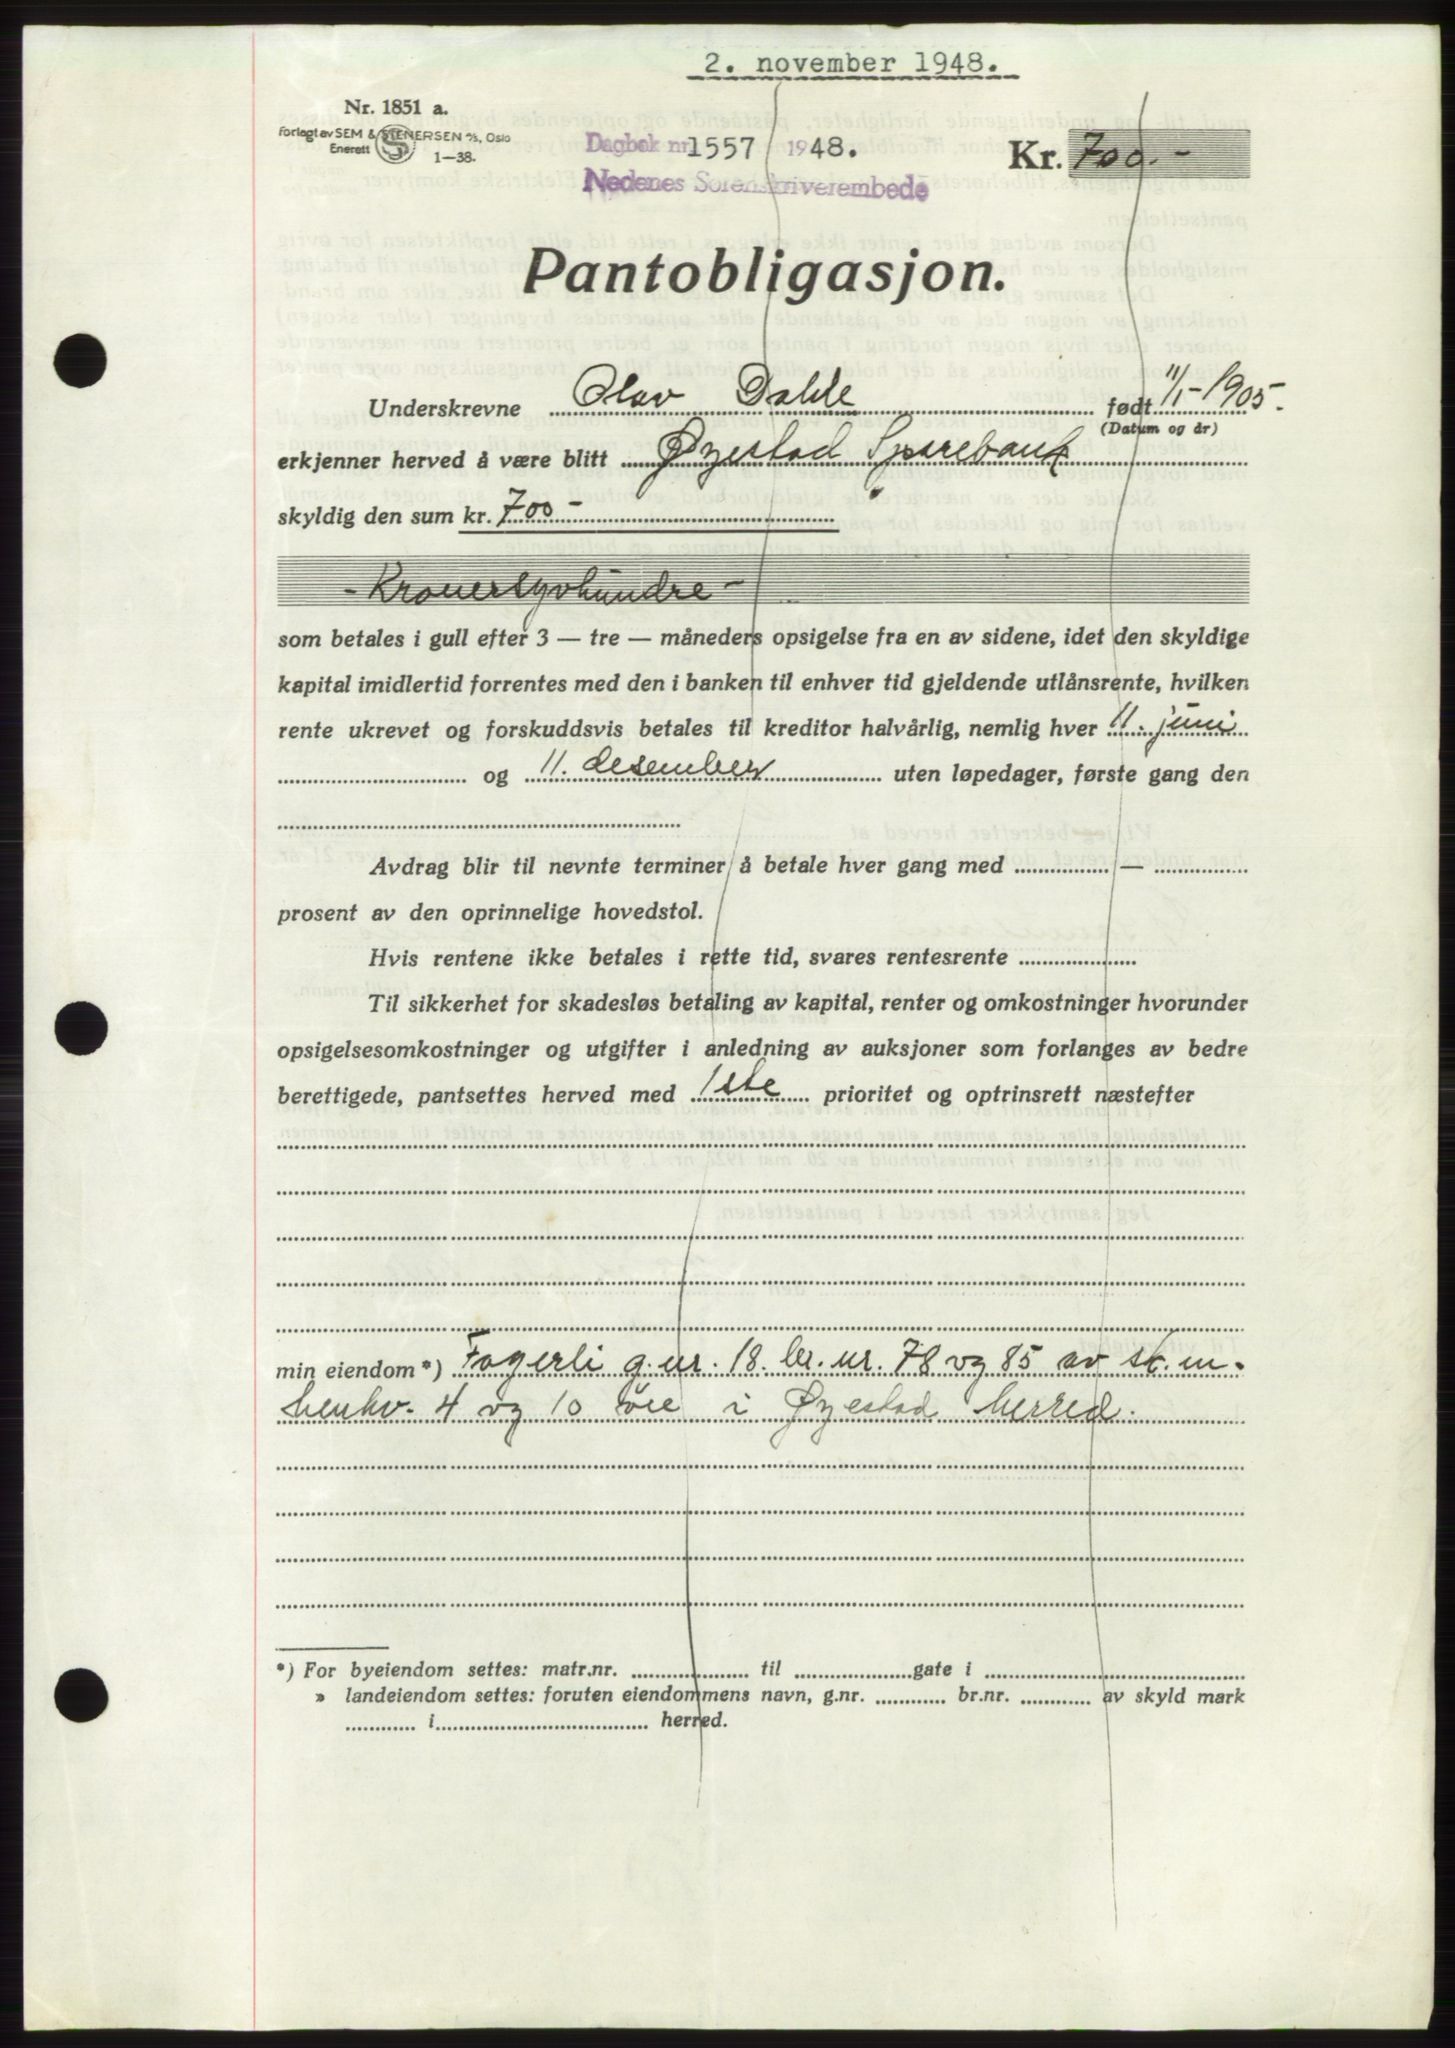 2. november 1948.
Nr. 1851 a.
Forlagt av SEM & STENERSEN A/S, Oslo
Enerett 1—38.
Dagbok nr. 1557 1948.
Nedenes Sorenskriverembede
Kr. 700.-
Pantobligasjon.
Underskrevne Olav Dahle født 11/1-1905.
(Datum og år)
erkjenner herved å være blitt Øyestad Sparebank
skyldig den sum kr. 700-
- Kronersyvhundre -
som betales i gull efter 3 — tre — måneders opsigelse fra en av sidene, idet den skyldige
kapital imidlertid forrentes med den i banken til enhver tid gjeldende utlånsrente, hvilken
rente ukrevet og forskuddsvis betales til kreditor halvårlig, nemlig hver 11. juni
og 11. desember uten løpedager, første gang den
Avdrag blir til nevnte terminer å betale hver gang med —
prosent av den oprinnelige hovedstol.
Hvis rentene ikke betales i rette tid, svares rentesrente
Til sikkerhet for skadesløs betaling av kapital, renter og omkostninger hvorunder
opsigelsesomkostninger og utgifter i anledning av auksjoner som forlanges av bedre
berettigede, pantsettes herved med 1ste prioritet og optrinsrett næstefter
min eiendom *) Fagerli g.nr. 18. br. nr. 78 og 85 av sk. m.
henhv. 4 og 10 øre i Øyestad herred.
*) For byeiendom settes: matr.nr. til gate i
» landeiendom settes: foruten eiendommens navn, g.nr. br.nr. av skyld mark
i herred.